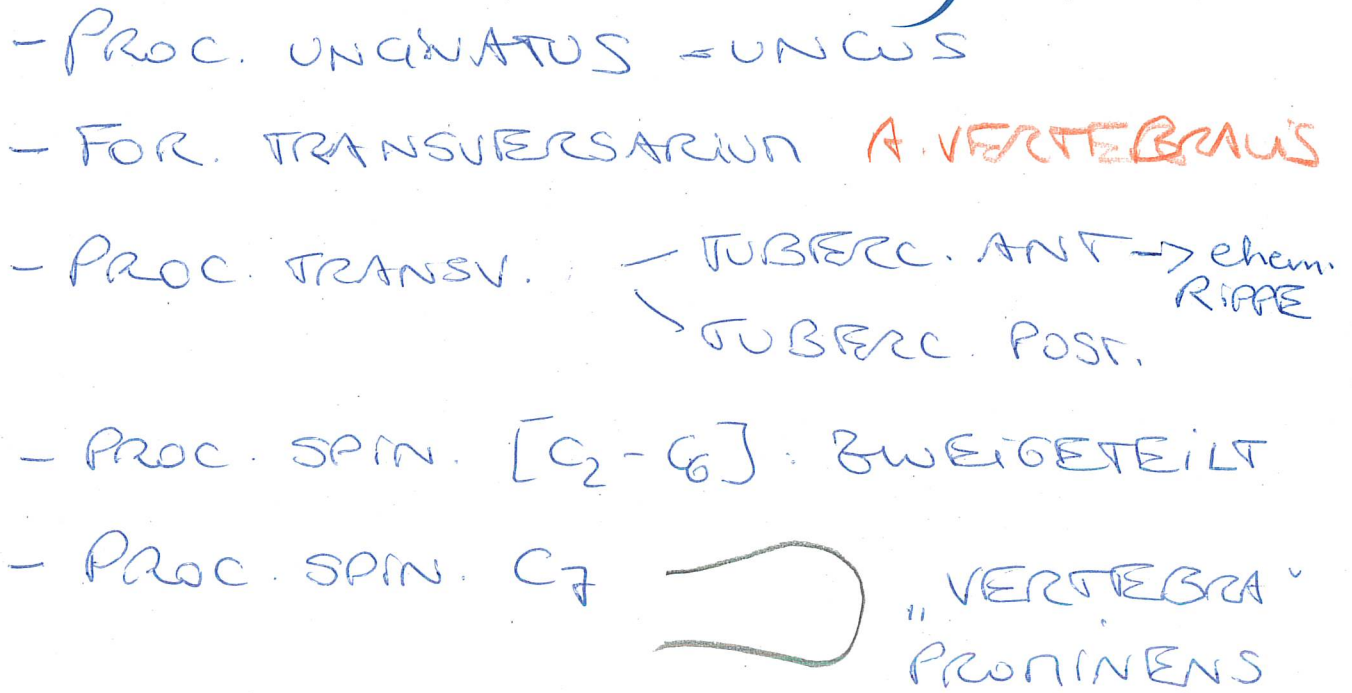 - PROC. UNCINATUS = UNCUS
- FOR. TRANSVERSARIUM A. VERTEBRALIS
- PROC. TRANSV. - TUBERC. ANT -> ehem.
RIPPE
TUBERC. POST.
- PROC. SPIN. [C2 - C6]: ZWEIGETEILT
- PROC. SPIN. C7
„VERTEBRA“
PROMINENS